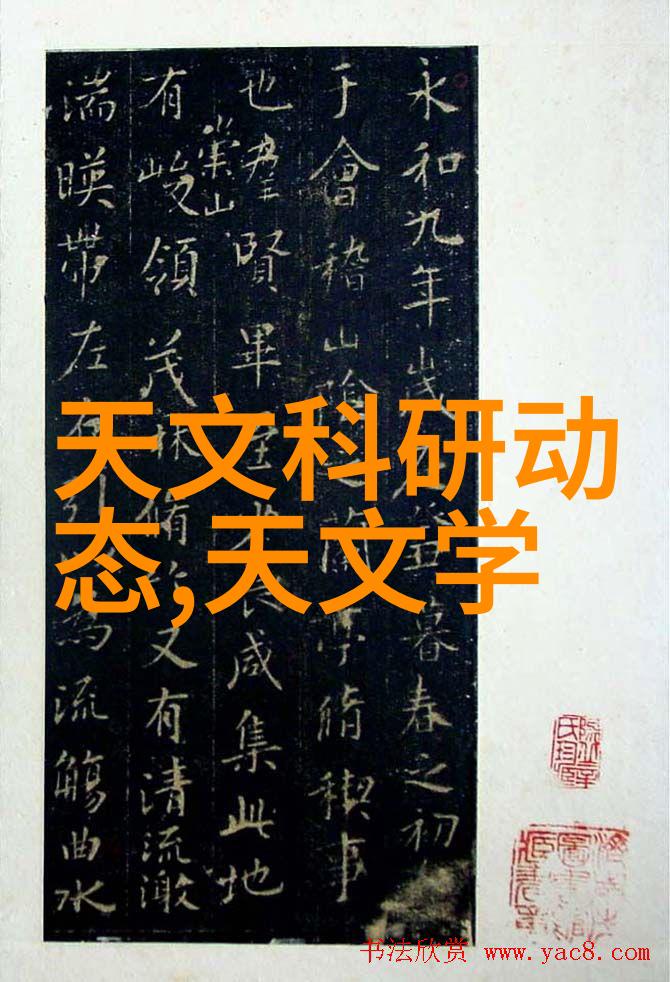 永和九年歲在癸丑暮春之初
于會稽山陰之蘭亭脩稧事
也羣賢畢至少長咸集此地
有崇山峻領茂林脩竹又有清流激
湍暎帶左右引為流觴曲水
天文科研动
态,天文学
书法欣赏 www.yac8.com